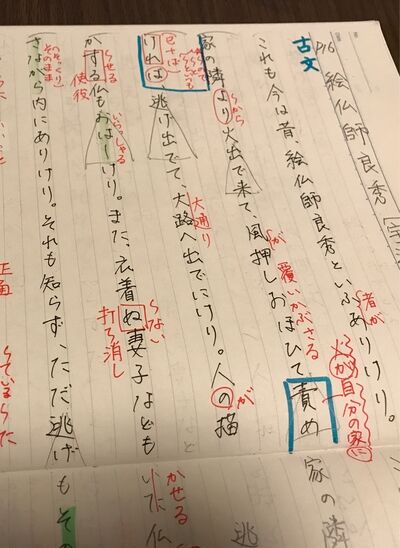 古文
P16 絵仏師良秀
者が
これも今は昔、絵仏師良秀といふありけり。
から
が
覆いかぶさる
火が自分の家に
家の隣より火出で来て、風押しおほひて責め
大通り
が
ければ、逃げ出でて、大路へ出でにけり。人の描
使役
いらっしゃる
打て消し
かする仏もおはしけり。また、衣着ぬ妻子なども
そっくり
そのまま
さながら内にありけり。それも知らず、ただ逃げもその
家の隣
かせる